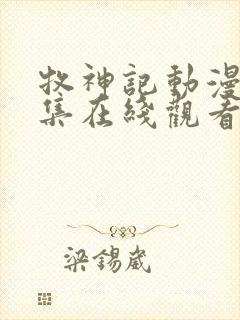 牧神記動漫
集在綫觀看
梁錫崴